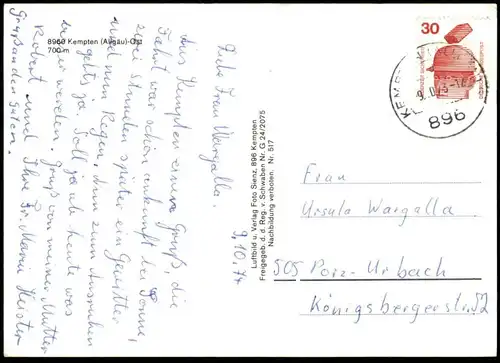 8960 Kempten (Allgäu)-Ost
700 m
9.10.74
Liebe Frau Wargalla.
Aus Kempten einen Gruß, die
Fahrt war schön ankunft bei Sonne,
zwei stunden später ein Gewitter
und nun Regen, dum zum Ausruhen
gehts ja. Soll ja ab heute was
besser werden. Gruß von meiner Mutter
Robert und Ihre Fr. Maria Keister
Großan den Guten.
Luftbild u. Verlag Foto Sienz, 896 Kempten
Freigegeb. d. d. Reg. v. Schwaben Nr. G 24/2075
Nachbildung verboten. Nr. 517
30
DEUTSCHE BUNDESPOST
KEMPTEN
896
Frau
Ursula Wargalla
505 Porz-Urbach
Königsbergerstr. 52